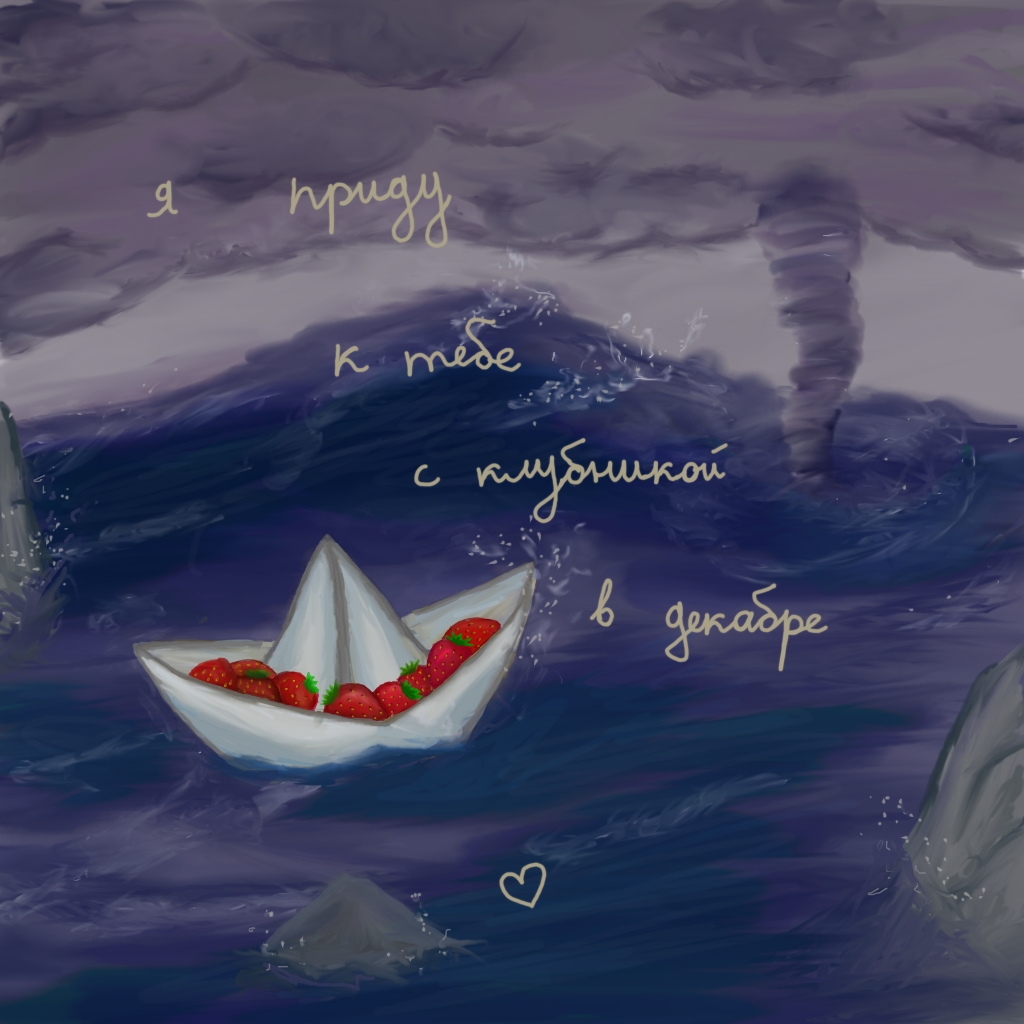 я приду
к тебе
с клубникой
в декабре